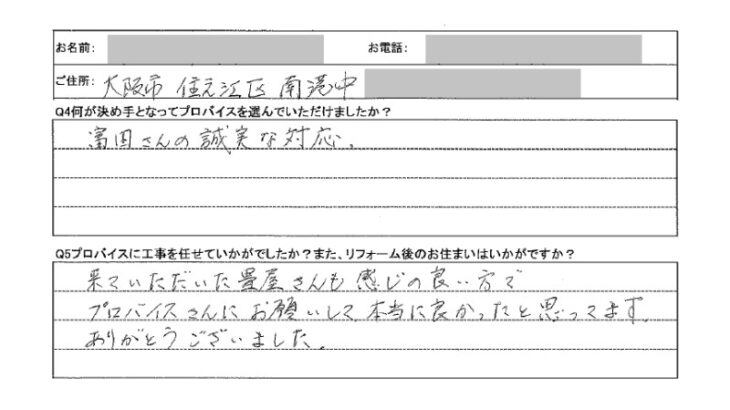 お名前: お電話:
ご住所: 大阪市 住之江区 南港中
Q4何が決め手となってプロバイスを選んでいただけましたか?
富田さんの誠実な対応。
Q5プロバイスに工事を任せていかがでしたか?また、リフォーム後のお住まいはいかがですか?
来ていただいた畳屋さんも感じの良い方で
プロバイスさんにお願いして本当に良かったと思ってます。
ありがとうございました。